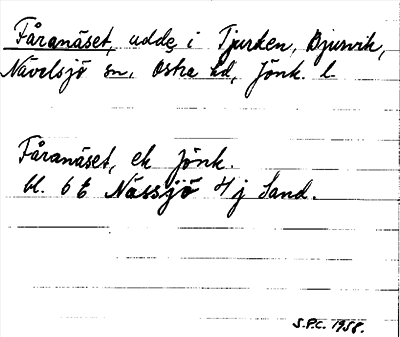 Fåranäset, udde i Tjurken, Bjurvik,
Nävelsjö sn, Östra hd, Jönk. l.
Fåranäset, ek Jönk.
bl. 6 E Nässjö 4 j Sand.
S.P.C. 1958.